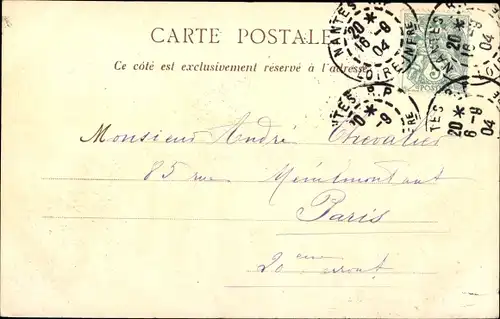 CARTE POSTALE
Ce côté est exclusivement réservé à l'adresse
NANTES R.P.
20 * 16-9 04
LOIRE-INFRE
Monsieur André Chevalier
85 rue Menilmontant
Paris
20 eme arront